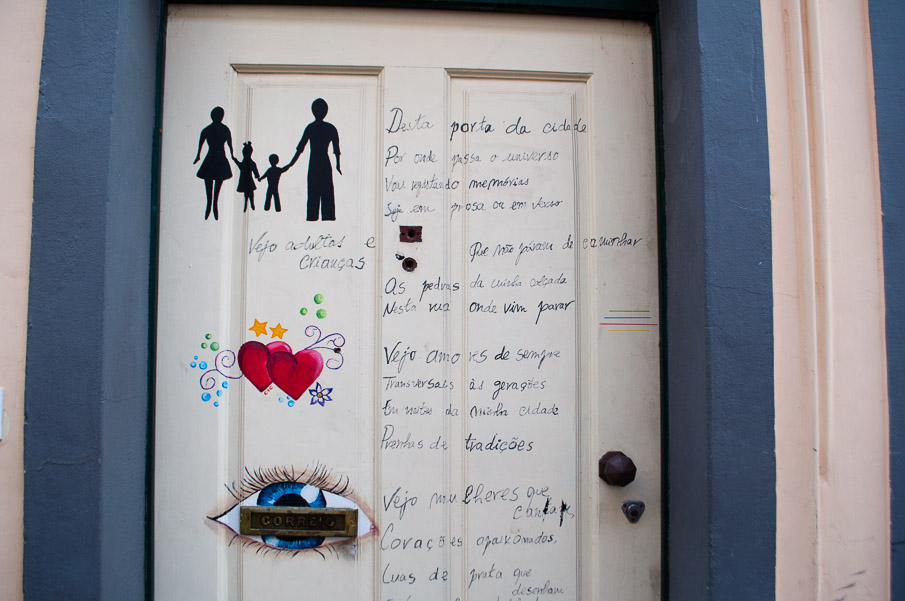 Desta porta da cidade
Por onde passa o universo
Vou registando memórias
Seja em prosa ou em verso
Vejo adultos e crianças
Que não páram de caminhar
As pedras da minha calçada
Nesta rua onde vim parar
Vejo amores de sempre
Transversais às gerações
Em noites da minha cidade
Prenhas de tradições
Vejo mulheres que
cantam
Corações apaixonados,
Luas de prata que
desenham
CORREIO